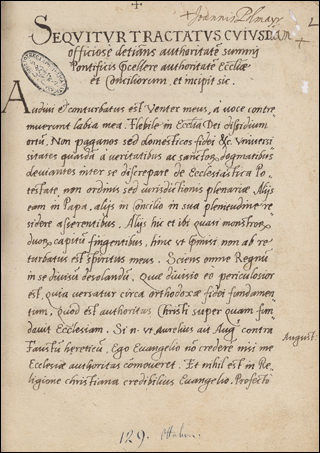 + Joannis Palmarij
SEQVITVR TRACTATVS CVIVSDAM
officiose detiners authoritatē summi
Pontificis excellere authoritatē Eccliæ
et Conciliorum, et incipit sic.
Audiui et conturbatus est Venter meus, a uoce contre
muerunt labia mea. Flebile in Ecclia Dei dissidium
ortū. Non paganos sed domesticos fidei &c. Vniuersi
sitates quasdā a ueritatibus ac sanctorum dogmatibus
deuiantes inter se discrepare de Ecclesiastica Po
testate non ordinis sed iurisdictionis plenariæ. Alijs
eam in Papa, alijs in Concilio in sua plenitudine re
sidere asserentibus. Alijs hic et ibi quasi monstrū
duorū capitū fingentibus, hinc vt premisi non ab re
turbatus est spiritus meus. Sciens omne Regnū
in se diuisum desolandū. Quæ diuisio eo periculosior
est, quia versatur circa orthodoxæ fidei fundamen
tum, quod est authoritas Christi super quam fun
dauit Ecclesiam. Si n. vt aurelius ait Aug. contra
August
Faustū hereticū, Ego Euangelio nō credere nisi me
Ecclesiæ authoritas cōmoueret. Et nihil est in Re
ligione christiana credibilius Euangelio. Profecto
129. Ottobon.